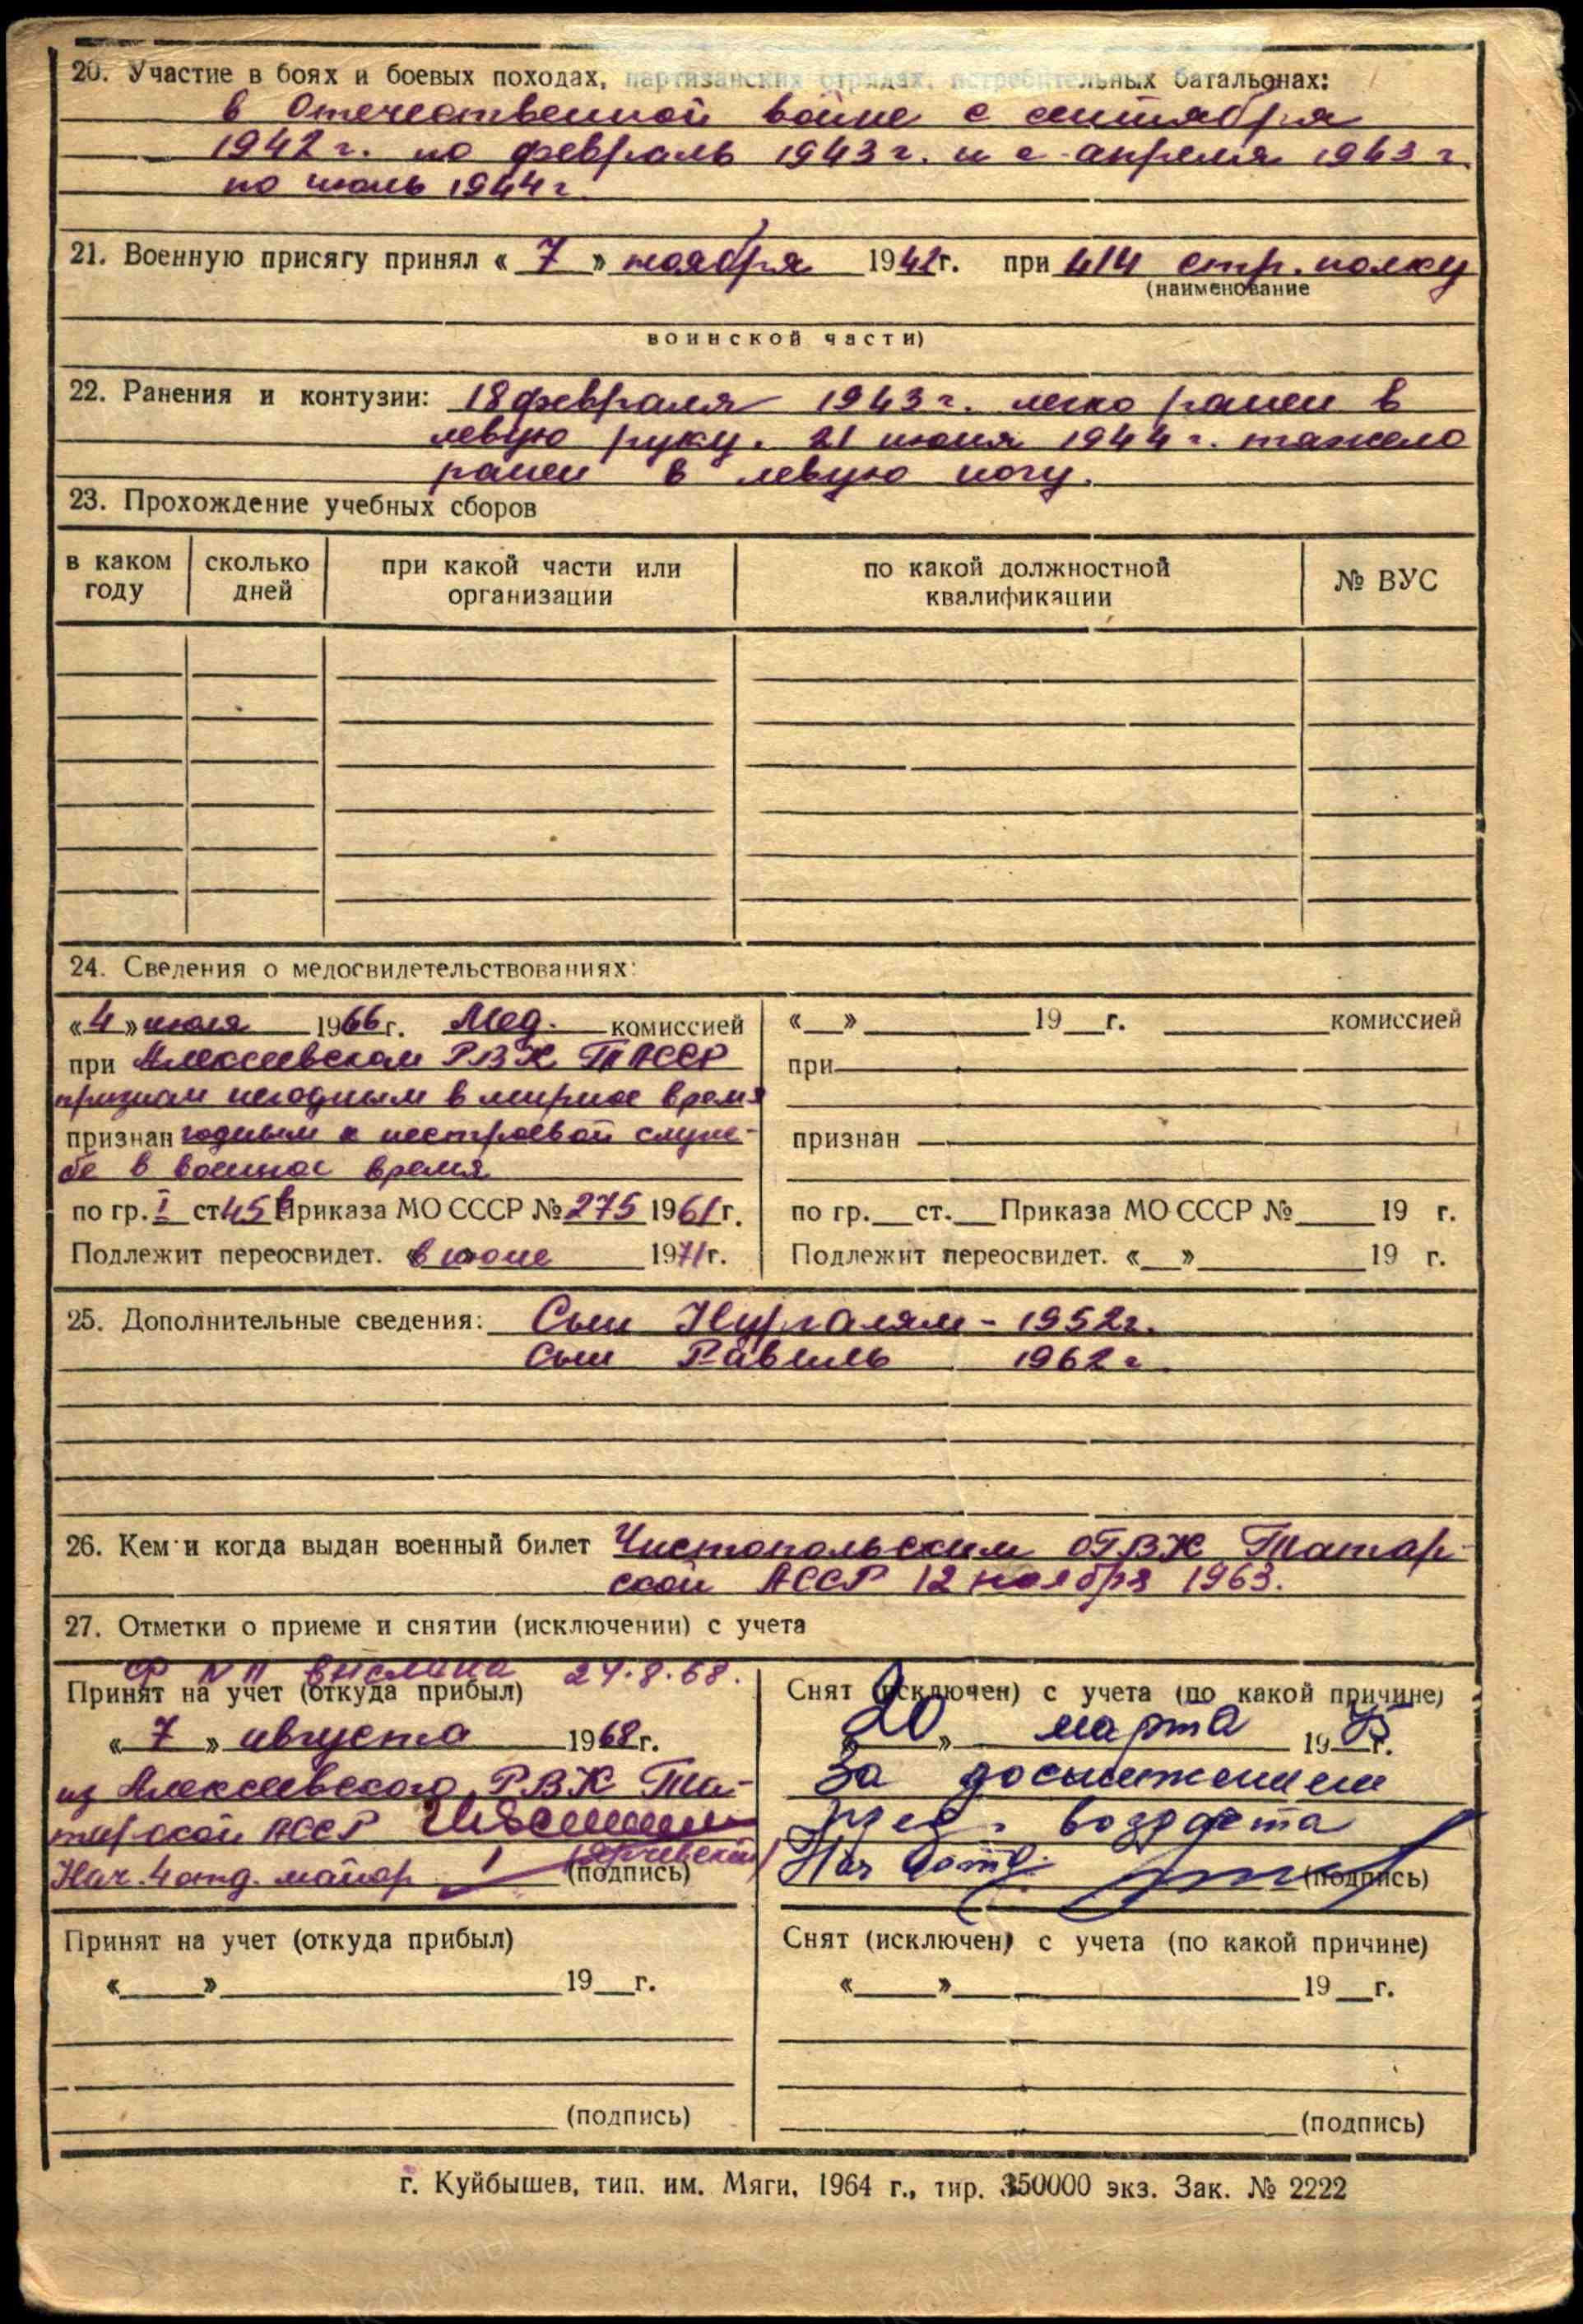 20. Участие в боях и боевых походах, партизанских отрядах, истребительных батальонах:
в Отечественной войне с сентября
1942 г. по февраль 1943 г. и с апреля 1943 г.
по июль 1944 г.
21. Военную присягу принял « 7 » ноября 1942г. при 414 стр. полку
(наименование
воинской части)
22. Ранения и контузии: 18 февраля 1943 г. легко ранен в
левую руку. 21 июня 1944 г. тяжело
ранен в левую ногу.
23. Прохождение учебных сборов
в каком году
сколько дней
при какой части или организации
по какой должностной квалификации
№ ВУС
24. Сведения о медосвидетельствованиях:
«4» июля 1966г. Мед. комиссией
при Алексеевском РВК ТАССР
признан негодным в мирное время
признан годным к нестроевой служ-
бе в военное время
по гр. I ст. 45 б Приказа МО СССР № 275 1961г.
Подлежит переосвидет. «в июне 1971г.
« » 19 г. комиссией
при
признан
по гр. ст. Приказа МО СССР № 19 г.
Подлежит переосвидет. « » 19 г.
25. Дополнительные сведения: Сын Нургалям - 1952г.
Сын Равиль 1962 г
26. Кем и когда выдан военный билет Чистопольским ОГВК Татар-
ской АССР 12 ноября 1963.
27. Отметки о приеме и снятии (исключении) с учета
выслана 24.8.68.
Принят на учет (откуда прибыл)
« 7 » августа 1968г.
из Алексеевского РВК Та-
тарской АССР
Нач. 4 отд. майор
(подпись)
Снят (исключен) с учета (по какой причине)
«20» марта 1975г.
За достижением
пред. возраста
Нач 4 отд.
(подпись)
Принят на учет (откуда прибыл)
« » 19 г.
(подпись)
Снят (исключен) с учета (по какой причине)
« » 19 г.
(подпись)
г. Куйбышев, тип. им. Мяги, 1964 г., тир. 350000 экз. Зак. № 2222